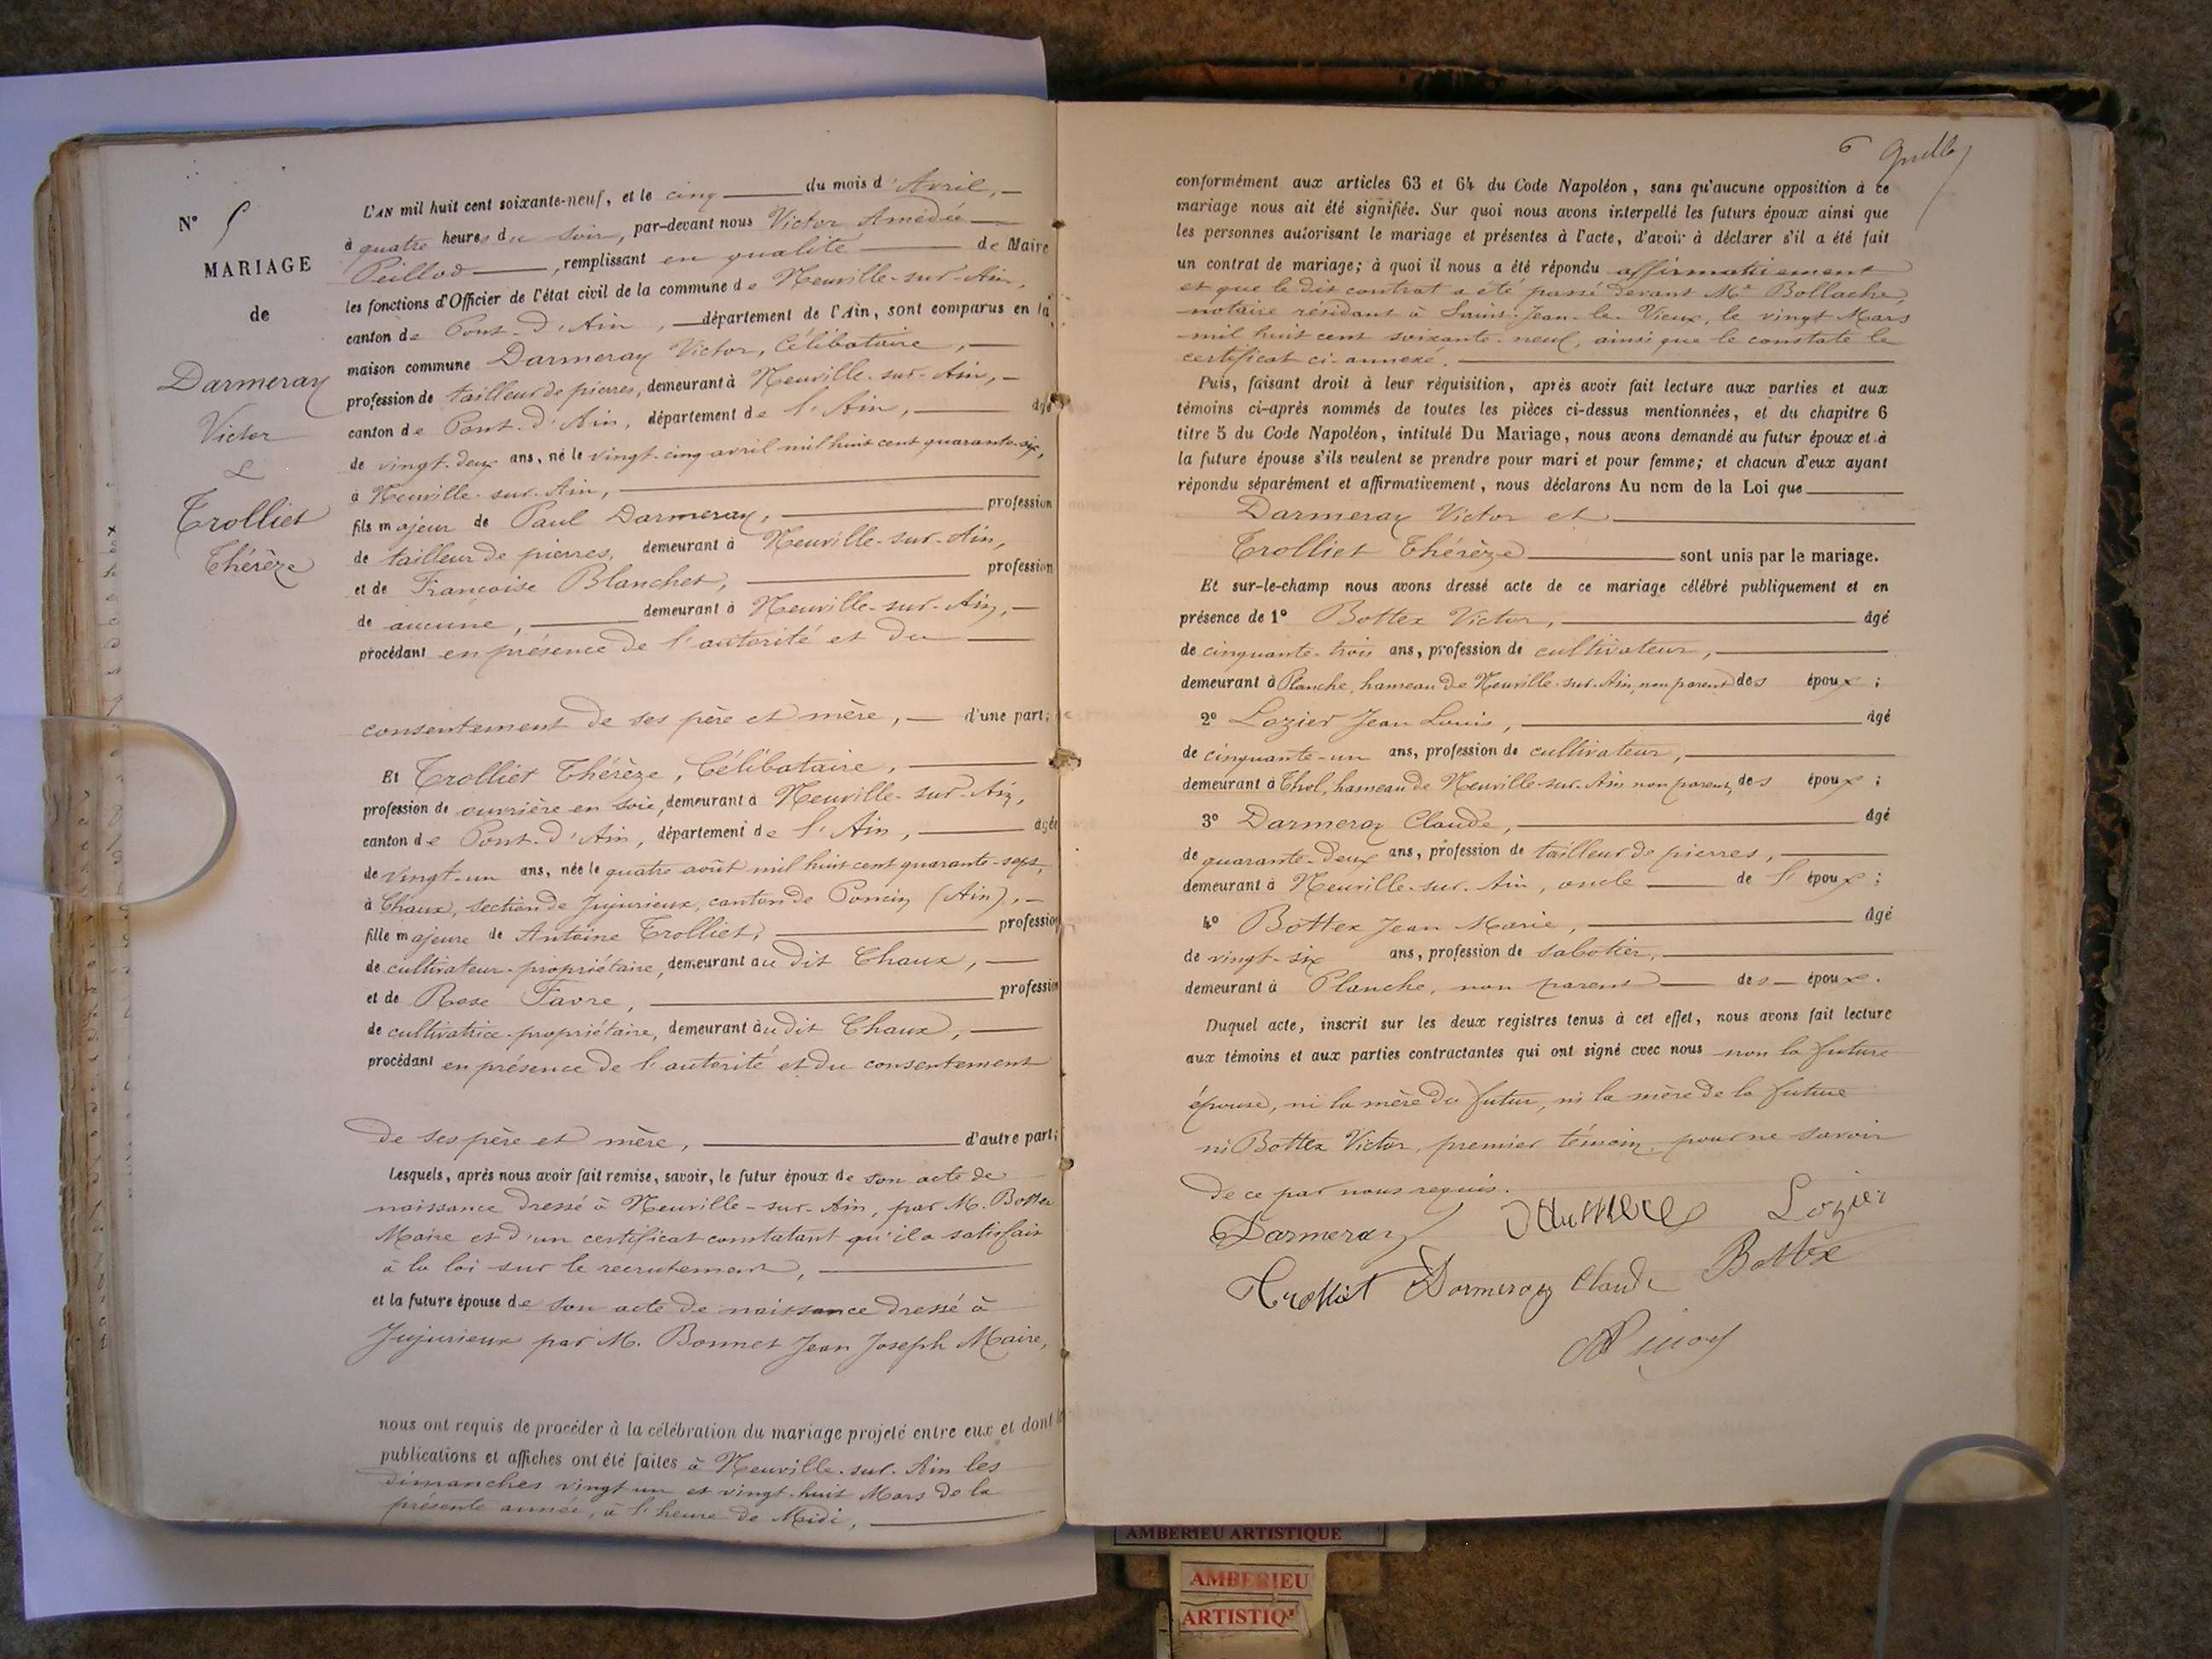 N° 5
MARIAGE
de
Darmeray
Victor
&
Trolliet
Thérèze
L'AN mil huit cent soixante-neuf, et le cinq du mois d'Avril,
à quatre heures du soir, par-devant nous Victor Amédée
Peillod, remplissant en qualité de Maire
les fonctions d'Officier de l'état civil de la commune de Neuville-sur-Ain,
canton de Pont-d'Ain, département de l'Ain, sont comparus en la
maison commune Darmeray Victor, Célibataire,
profession de tailleur de pierres, demeurant à Neuville-sur-Ain,
canton de Pont-d'Ain, département de l'Ain, âgé
de vingt-deux ans, né le vingt-cinq avril mil huit cent quarante-six,
à Neuville-sur-Ain,
fils majeur de Paul Darmeray, profession
de tailleur de pierres, demeurant à Neuville-sur-Ain,
et de Françoise Blanchet, profession
de aucune, demeurant à Neuville-sur-Ain,
procédant en présence de l'autorité et du
consentement de ses père et mère, d'une part;
Et Trolliet Thérèze, Célibataire,
profession de ouvrière en soie, demeurant à Neuville-sur-Ain,
canton de Pont-d'Ain, département de l'Ain, âgée
de vingt-un ans, née le quatre août mil huit cent quarante-sept,
à Chaux, section de Jujurieux, canton de Poncin (Ain),
fille majeure de Antoine Trolliet, profession
de cultivateur-propriétaire, demeurant au dit Chaux,
et de Rose Favre, profession
de cultivatrice-propriétaire, demeurant au dit Chaux,
procédant en présence de l'autorité et du consentement
de ses père et mère, d'autre part;
Lesquels, après nous avoir fait remise, savoir, le futur époux de son acte de
naissance dressé à Neuville-sur-Ain, par M. Bottex
Maire et d'un certificat constatant qu'il a satisfait
à la loi sur le recrutement,
et la future épouse de son acte de naissance dressé à
Jujurieux par M. Bonnet Jean Joseph Maire,
nous ont requis de procéder à la célébration du mariage projeté entre eux et dont
publications et affiches ont été faites à Neuville-sur-Ain les
dimanches vingt-un et vingt-huit Mars de la
présente année, à l'heure de Midi,
6
conformément aux articles 63 et 64 du Code Napoléon, sans qu'aucune opposition à ce
mariage nous ait été signifiée. Sur quoi nous avons interpellé les futurs époux ainsi que
les personnes autorisant le mariage et présentes à l'acte, d'avoir à déclarer s'il a été fait
un contrat de mariage; à quoi il nous a été répondu affirmativement
et que le dit contrat a été passé devant Me Bollache,
notaire résidant à Saint-Jean-le-Vieux, le vingt Mars
mil huit cent soixante-neuf, ainsi que le constate le
certificat ci-annexé.
Puis, faisant droit à leur réquisition, après avoir fait lecture aux parties et aux
témoins ci-après nommés de toutes les pièces ci-dessus mentionnées, et du chapitre 6
titre 5 du Code Napoléon, intitulé Du Mariage, nous avons demandé au futur époux et à
la future épouse s'ils veulent se prendre pour mari et pour femme; et chacun d'eux ayant
répondu séparément et affirmativement, nous déclarons Au nom de la Loi que
Darmeray Victor et
Trolliet Thérèze sont unis par le mariage.
Et sur-le-champ nous avons dressé acte de ce mariage célébré publiquement et en
présence de 1° Bottex Victor, âgé
de cinquante-trois ans, profession de cultivateur,
demeurant à Planche, hameau de Neuville-sur-Ain, non parent des époux;
2° Lozier Jean Louis, âgé
de cinquante-un ans, profession de cultivateur,
demeurant à Thol, hameau de Neuville-sur-Ain non parent, des époux;
3° Darmeray Claude, âgé
de quarante-deux ans, profession de tailleur de pierres,
demeurant à Neuville-sur-Ain, oncle de l'époux;
4° Bottex Jean Marie, âgé
de vingt-six ans, profession de sabotier,
demeurant à Planche, non parent des époux.
Duquel acte, inscrit sur les deux registres tenus à cet effet, nous avons fait lecture
aux témoins et aux parties contractantes qui ont signé avec nous non la future
épouse, ni la mère du futur, ni la mère de la future
ni Bottex Victor, premier témoin, pour ne savoir
de ce par nous requis.
Darmeray Lozier
Trolliet Darmeray Claude Bottex
AMBERIEU ARTISTIQUE
AMBERIEU
ARTISTIQ